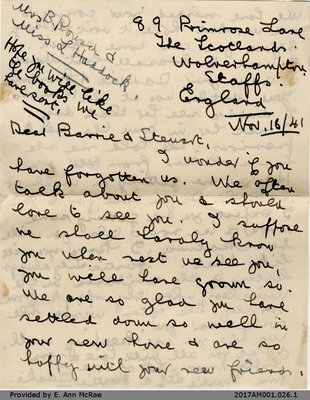 Mrs B. Poind &
Miss L Haddock.
Hope you will like
the books we
have sent.
89 Primrose Lane
The Scotlands.
Wolverhampton.
Staffs.
England
Nov. 16/41
Dear Barrie & Stewart,
I wonder if you
have forgotten us. We often
talk about you & should
love to see you. I suppose
we shall hardly know
you when next we see you,
you will have grown so.
We are so glad you have
settled down so well in
your new home & are so
happy with your new friends.
Provided by E. Ann McRae
2017AM001.026.1